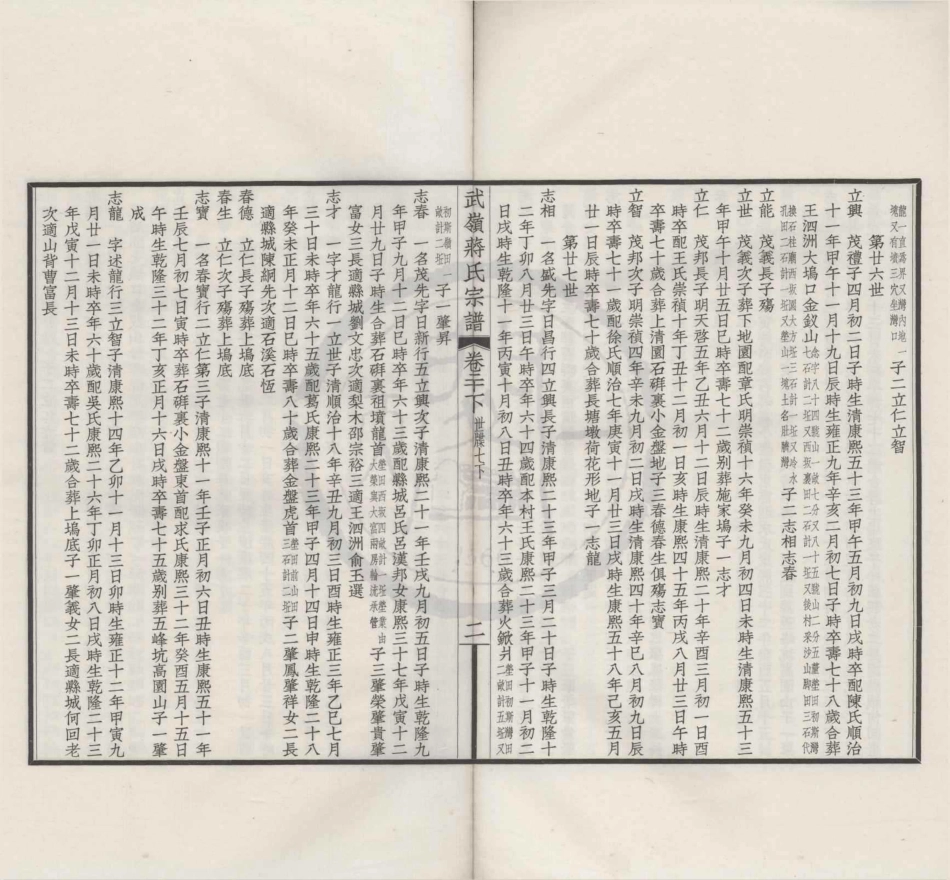 龍一直壽昇又灣內地
塊又有墳三穴坐灣口
一子二立仁立智
第廿六世
立興 茂禮子四月初二日子時生清康熙五十三年甲午五月初九日戌時卒配陳氏順治
十一年甲午十一月十九日辰時生雍正九年辛亥二月初七日子時卒壽七十八歲合葬
王泗洲大塢口金釵山
子二志相志春
立能 茂義長子殤
立世 茂義次子葬下地園配章氏明崇禎十六年癸未九月初四日未時生清康熙五十三
年甲午十月廿五日巳時卒壽七十二歲别葬施家塢子一志才
立仁 茂邦長子明天啓五年乙丑六月十二日辰時生清康熙二十年辛酉三月初一日酉
時卒配王氏崇禎十年丁丑十二月初一日亥時生康熙四十五年丙戌八月廿三日午時
卒壽七十歲合葬上清園石硸裏小金盤地子三春德春生俱殤志寶
立智 茂邦次子明崇禎四年辛未九月初二日戌時生清康熙四十年辛巳八月初九日辰
時卒壽七十一歲配徐氏順治七年庚寅十一月廿三日戌時生康熙五十八年己亥五月
廿一日辰時卒壽七十歲合葬長塘墩荷花形地子一志龍
第廿七世
志相 一名盛先字日昌行四立興長子清康熙二十三年甲子三月二十日子時生乾隆十
二年丁卯八月廿三日午時卒年六十四歲配本村王氏康熙二十三年甲子十一月初二
日戌時生乾隆十一年丙寅十月初八日丑時卒年六十三歲合葬火鍁爿
武嶺蔣氏宗譜 卷二十下 世牒七下 二
初斯嶺田
畝計二坵
子一肇昇
志春 一名茂先字日新行五立興次子清康熙二十一年壬戌九月初五日子時生乾隆九
年甲子九月十二日巳時卒年六十三歲配縣城呂氏呂漢邦女康熙三十七年戊寅十二
月廿九日子時生合葬石硸裏祖墳龍首
子三肇榮肇貴肇
富女三長適縣城劉文忠次適梨木邵宗裕三適王泗洲俞玉選
志才 一字才龍行一立世子清順治十八年辛丑九月初三日酉時生雍正三年乙巳七月
三十日未時卒年六十五歲配葛氏康熙二十三年甲子四月十四日申時生乾隆二十八
年癸未正月十二日巳時卒壽八十歲合葬金盤虎首
子二肇鳳肇祥女二長
適縣城陳綱先次適石溪石恆
春德 立仁長子殤葬上塢底
春生 立仁次子殤葬上塢底
志寶 一名春寶行二立仁第三子清康熙十一年壬子正月初六日丑時生康熙五十一年
壬辰七月初七日寅時卒葬石硸裏小金盤東首配求氏康熙三十二年癸酉五月十五日
午時生乾隆三十二年丁亥正月十六日戌時卒壽七十五歲别葬五峰坑高園山子一肇
成
志龍 字述龍行三立智子清康熙十四年乙卯十一月十三日卯時生雍正十二年甲寅九
月廿一日未時卒年六十歲配吳氏康熙二十六年丁卯正月初八日戌時生乾隆二十三
年戊寅十二月十三日未時卒壽七十二歲合葬上塢底子一肇義女二長適縣城何回老
次適山背曹富長